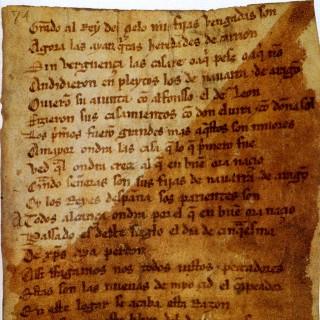 74
Grado al Rey del çielo mis fijas vengadas son
Agora las ayan quitas heredades de carrion
Sin verguença las casare o a qui pese o a qui non
Andidieron en pleytos los de navarra e de aragon
Ovieron su aiunta con alfonsso el de Leon
Fizieron sus casamientos con don elvira e con doña sol
Los primeros fueron grandes mas aquestos son miiores
A mayor ondra las casa que lo que primero fue
Ved qual ondra creçe al que en buen ora naçio
Quando señoras son sus fijas de navarra e de aragon
Oy los Reyes despaña sos parientes son
A todos alcança ondra por el que en buen ora naçio
Passado es deste sieglo el dia de cinquaesma
De christus aya perdon
Assi ffagamos nos todos iustos e pecadores
Estas son las nuevas de myo çid el campeador
En este logar se acaba esta Razon